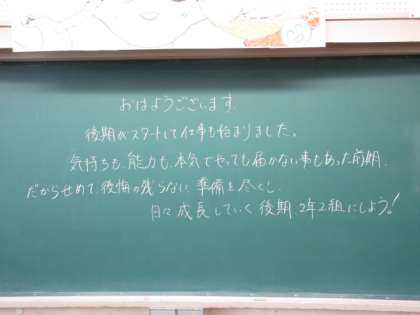 おはようございます。
後期がスタートして仕事も始まりました。
気持ちも、能力も、本気でやっても届かない事もあった前期、
だからせめて、後悔の残らない準備を尽くし、
日々成長していく後期、2年2組にしよう!